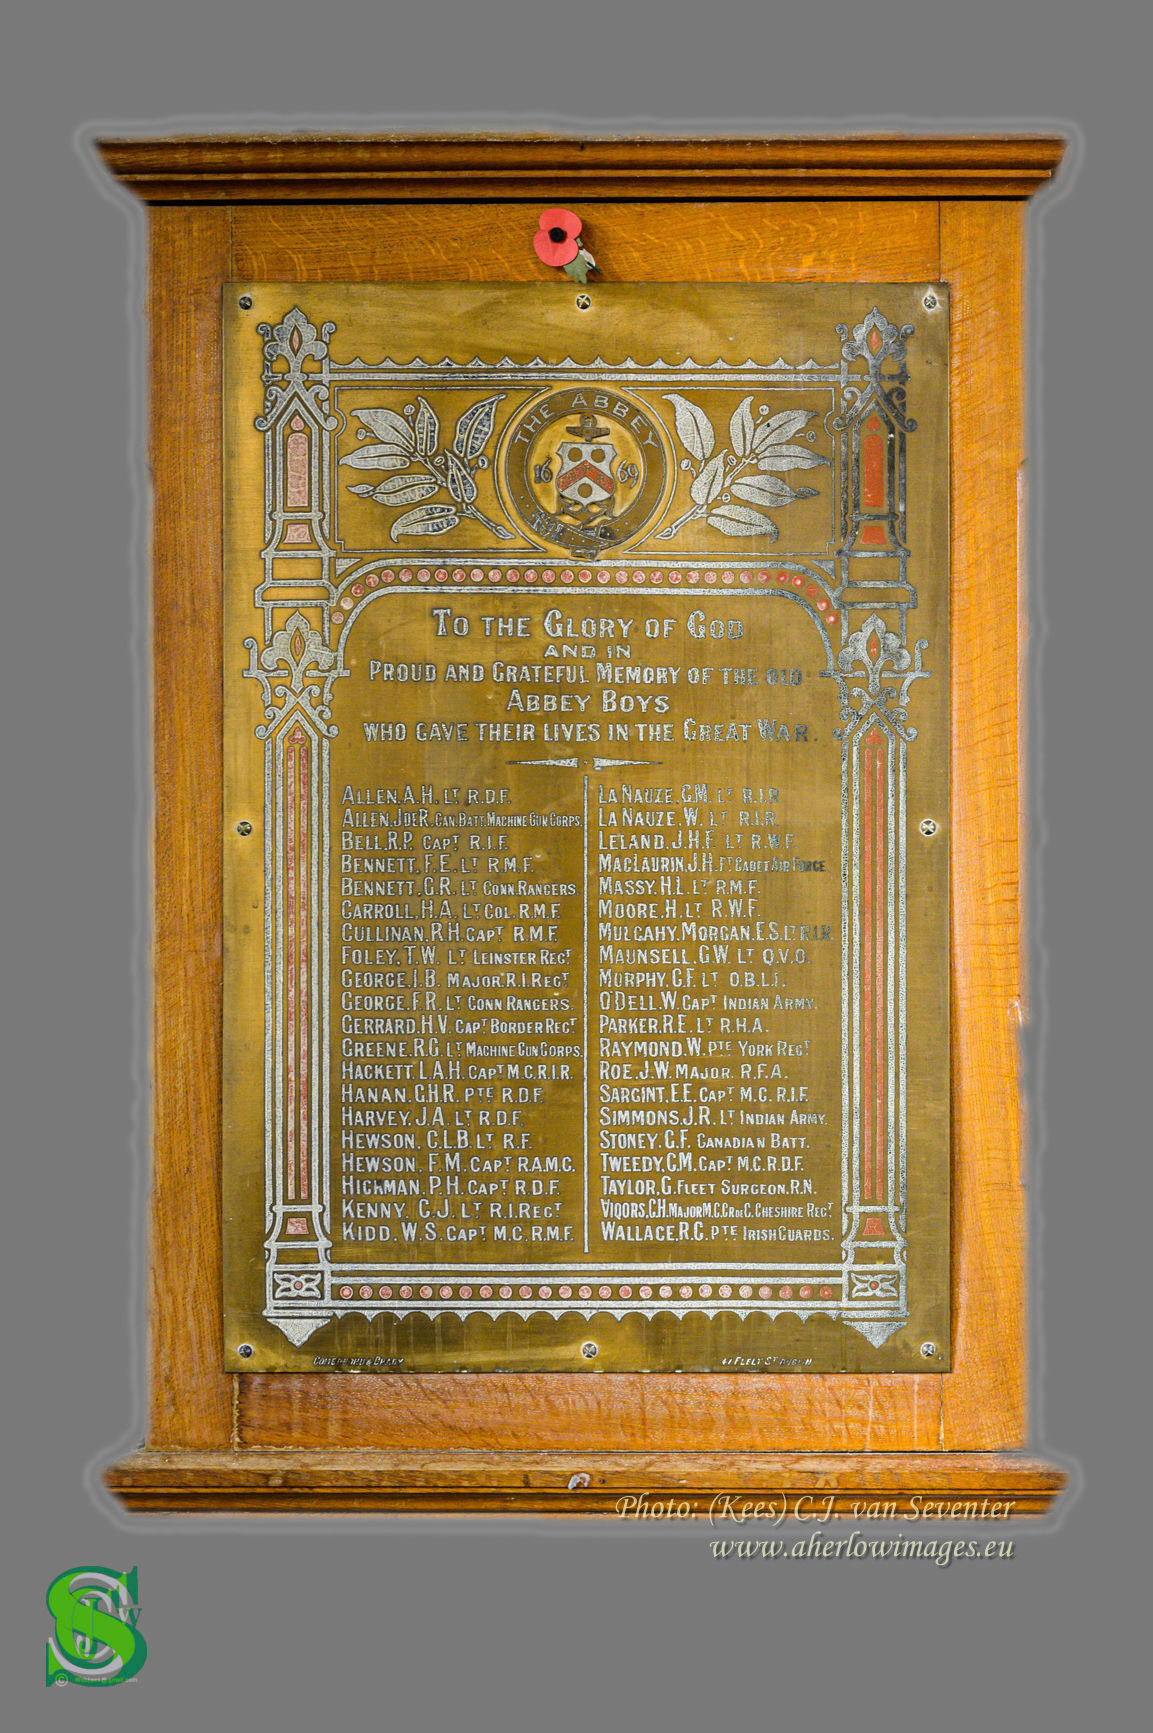 THE ABBEY
1669
TO THE GLORY OF GOD
AND IN
PROUD AND GRATEFUL MEMORY OF THE OLD
ABBEY BOYS
WHO GAVE THEIR LIVES IN THE GREAT WAR.
ALLEN.A.H. LT R.D.F.
ALLEN.J.DER. CAN.BATT.MACHINE GUN CORPS.
BELL.R.P. CAPT R.I.F.
BENNETT.F.E. LT R.M.F.
BENNETT.G.R. LT CONN.RANGERS.
CARROLL.H.A. LT COL.R.M.F.
CULLINAN.R.H. CAPT R.M.F.
FOLEY.T.W. LT LEINSTER REGT
GEORGE.I.B. MAJOR.R.I.REGT
GEORGE.F.R. LT CONN RANGERS.
GERRARD.H.V. CAPT BORDER REGT
GREENE.R.G. LT MACHINE GUN CORPS.
HACKETT.L.A.H. CAPT M.C.R.I.R.
HANAN.G.H.R. PTE R.D.F.
HARVEY.J.A. LT R.D.F.
HEWSON. C.L.B. LT R.F.
HEWSON. F.M. CAPT R.A.M.C.
HICKMAN.P.H. CAPT R.D.F.
KENNY. C.J. LT R.I.REGT
KIDD.W.S. CAPT M.C.R.M.F.
LA NAUZE.G.M. LT R.I.R.
LA NAUZE.W. LT R.I.R.
LELAND.J.H.F. LT R.W.F.
MACLAURIN.J.H. FT CADET AIR FORCE
MASSY.H.L. LT R.M.F.
MOORE.H. LT R.W.F.
MULCAHY.MORGAN.E.S. LT R.I.R.
MAUNSELL.G.W. LT Q.V.O.
MURPHY.G.F. LT O.B.L.I.
O'DELL.W. CAPT INDIAN ARMY.
PARKER.R.E. LT R.H.A.
RAYMOND.W. PTE YORK REGT
ROE.J.W. MAJOR. R.F.A.
SARGINT.E.E. CAPT M.C. R.I.F.
SIMMONS.J.R. LT INDIAN ARMY.
STONEY.G.F. CANADIAN BATT.
TWEEDY.G.M. CAPT M.C.R.D.F.
TAYLOR.G. FLEET SURGEON.R.N.
VIGORS.C.H. MAJOR M.C.CR DE G. CHESHIRE REGT
WALLACE.R.G. PTE IRISH GUARDS.
41 FLEET ST DUBLIN
Photo: (Kees) C.J. van Seventer
www.aherlowimages.eu